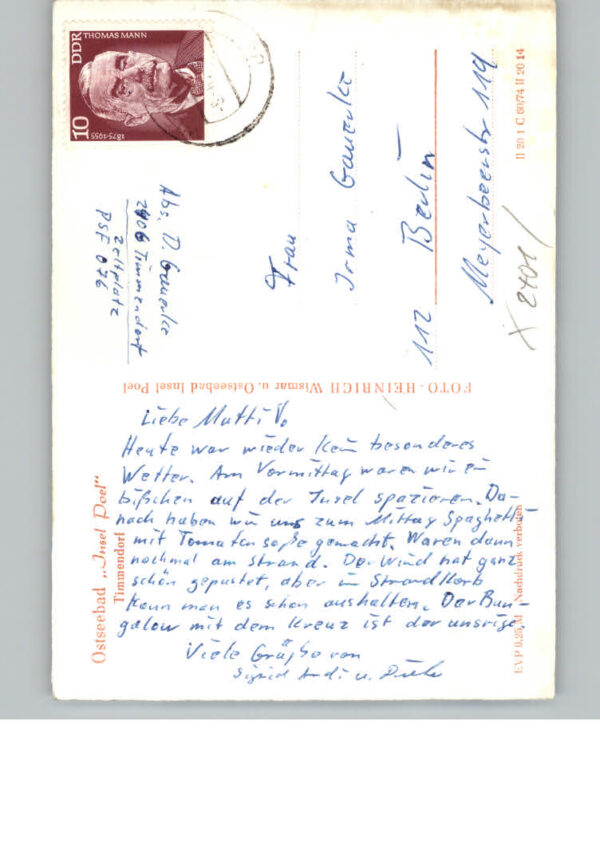 DDR THOMAS MANN
10
1875-1955
Abs. D. Gauerke
2406 Timmendorf
Zeltplatz
PSF 076
Frau
Irma Gauerke
112 Berlin
Meyerbeerstr 119
X 2401/
II 20 1 C 60/74 II 20 14
FOTO-HEINRICH Wismar u. Ostseebad Insel Poel
Ostseebad „Insel Poel"
Timmendorf
EVP 0,25 M Nachdruck verboten
Liebe Mutti!
Heute war wieder kein besonderes
Wetter. Am Vormittag waren wir ein
bißchen auf der Insel spazieren. Da-
nach haben wir uns zum Mittag Spaghetti
mit Tomatensoße gemacht. Waren dann
nochmal am Strand. Der Wind hat ganz
schön gepustet, aber im Strandkorb
kann man es schon aushalten. Der Bun-
galow mit dem Kreuz ist der unsrige.
Viele Grüße von
Sigrid Andi u.